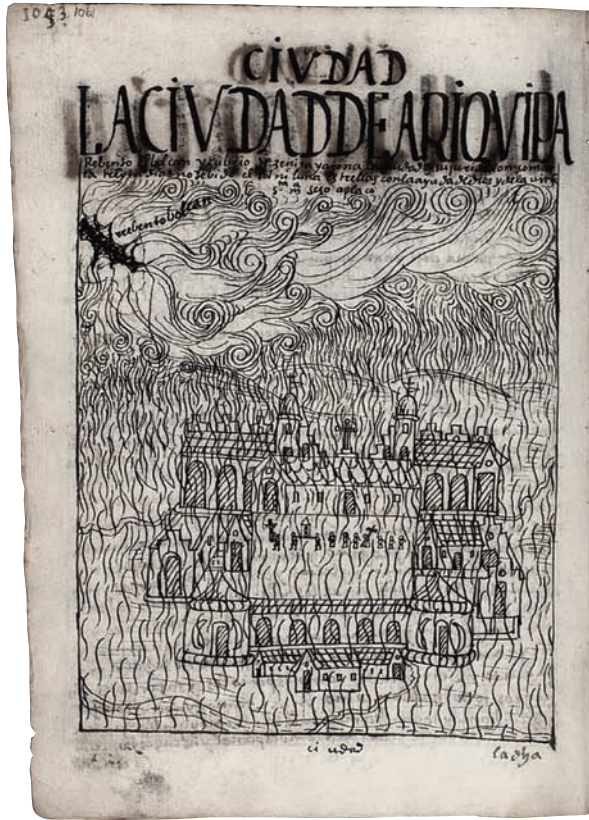 1061
CIVDAD
LA CIVDAD DE ARIQVIPA
Rebento el bolcan y cubrio de zeniza y arena la ciudad y su juridicion comar
ca treynta dias no se bido el sol ni luna estrellas con la ayuda de dios y de la
s^ta m^a seso aplaco
rebento bolcan
ciudad
la dha